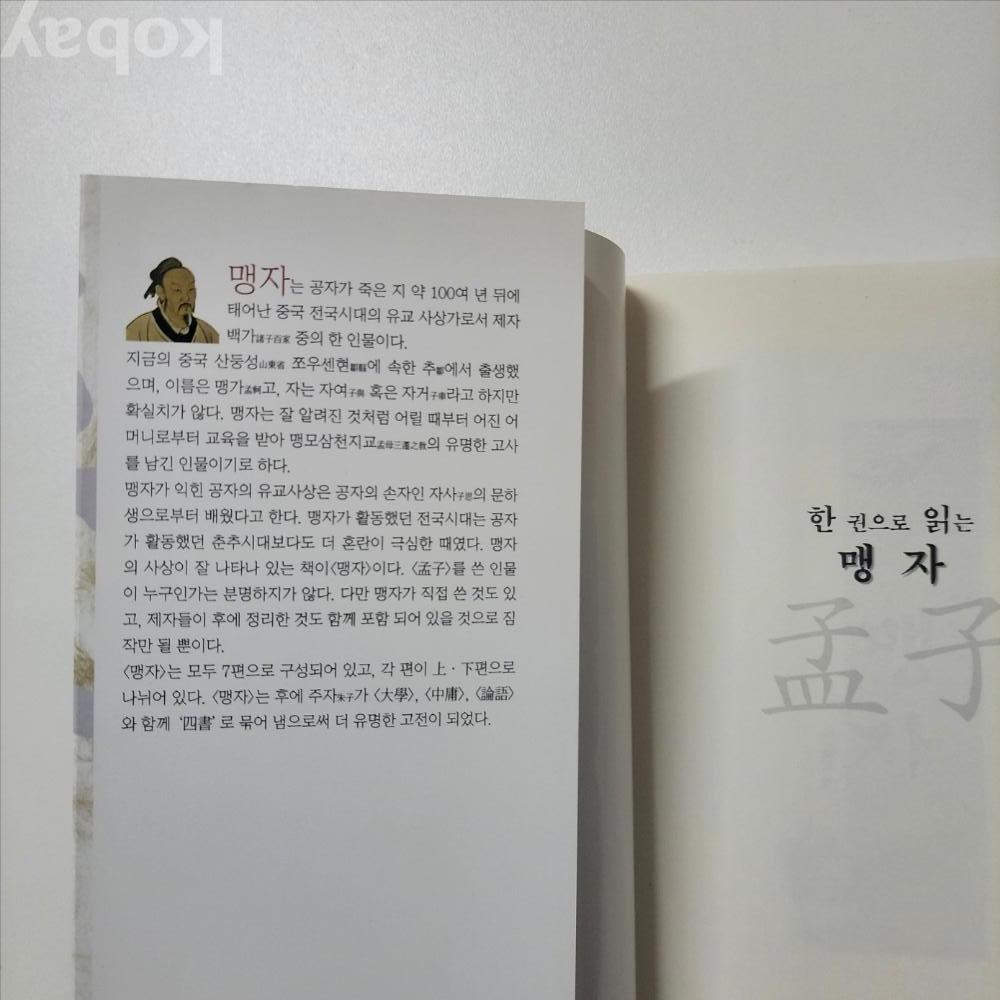 kobay
맹자는 공자가 죽은 지 약 100여 년 뒤에
태어난 중국 전국시대의 유교 사상가로서 제자
백가諸子百家 중의 한 인물이다.
지금의 중국 산둥성山東省 쪼우센현鄒縣에 속한 추鄒에서 출생했
으며, 이름은 맹가孟軻고, 자는 자여子輿 혹은 자거子車라고 하지만
확실치가 않다. 맹자는 잘 알려진 것처럼 어릴 때부터 어진 어
머니로부터 교육을 받아 맹모삼천지교孟母三遷之敎의 유명한 고사
를 남긴 인물이기로 하다.
맹자가 익힌 공자의 유교사상은 공자의 손자인 자사子思의 문하
생으로부터 배웠다고 한다. 맹자가 활동했던 전국시대는 공자
가 활동했던 춘추시대보다도 더 혼란이 극심한 때였다. 맹자
의 사상이 잘 나타나 있는 책이〈맹자〉이다. 〈孟子〉를 쓴 인물
이 누구인가는 분명하지가 않다. 다만 맹자가 직접 쓴 것도 있
고, 제자들이 후에 정리한 것도 함께 포함 되어 있을 것으로 짐
작만 될 뿐이다.
〈맹자〉는 모두 7편으로 구성되어 있고, 각 편이 上·下편으로
나뉘어 있다. 〈맹자〉는 후에 주자朱子가 〈大學〉, 〈中庸〉, 〈論語〉
와 함께 '四書'로 묶어 냄으로써 더 유명한 고전이 되었다.
한 권으로 읽는
맹자
孟子